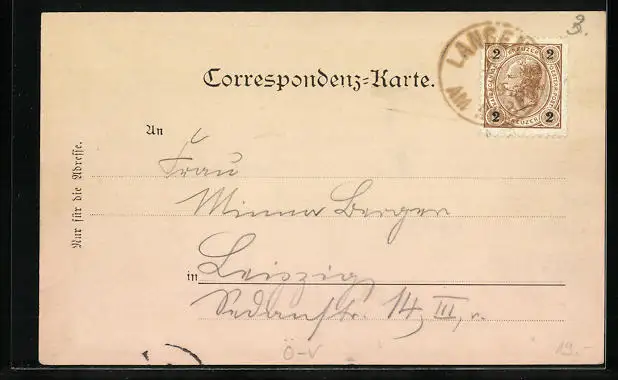 3.
LANGEN
AM
2 KREUZER 2
2 KREUZER 2
Correspondenz-Karte.
An
Frau
Minna Berger
in Leipzig
Sedanstr. 14, III, r.
Nur für die Adresse.
Ö-V
19.-